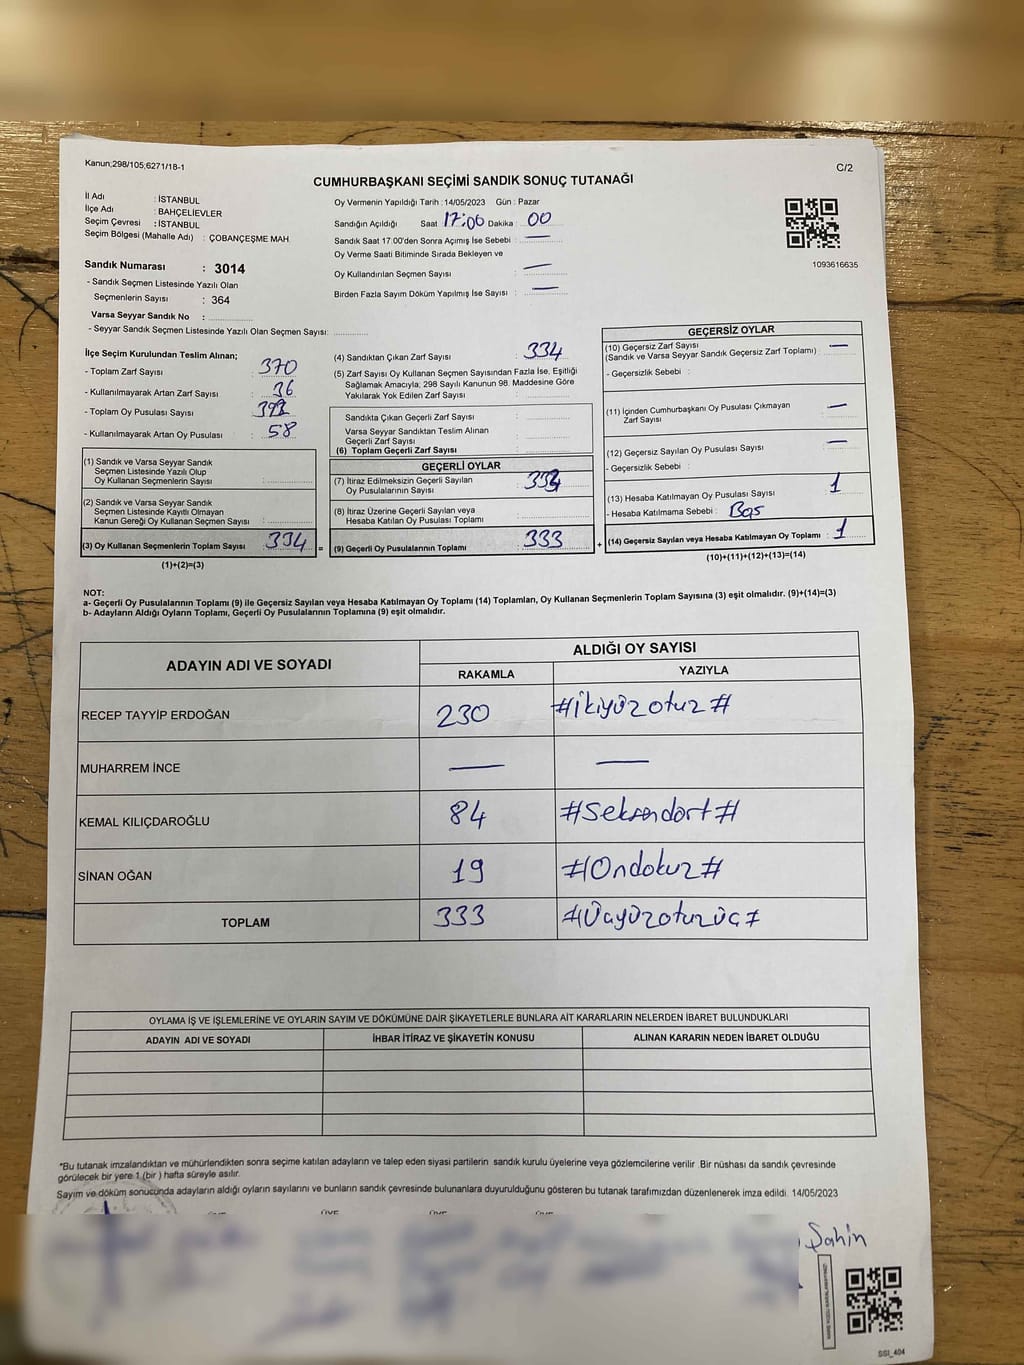 Kanun;298/105;6271/18-1
C/2
CUMHURBAŞKANI SEÇİMİ SANDIK SONUÇ TUTANAĞI
İl Adı : İSTANBUL
İlçe Adı : BAHÇELİEVLER
Seçim Çevresi : İSTANBUL
Seçim Bölgesi (Mahalle Adı) : ÇOBANÇEŞME MAH.
Sandık Numarası : 3014
- Sandık Seçmen Listesinde Yazılı Olan
Seçmenlerin Sayısı : 364
Varsa Seyyar Sandık No :
- Seyyar Sandık Seçmen Listesinde Yazılı Olan Seçmen Sayısı:
Oy Vermenin Yapıldığı Tarih : 14/05/2023 Gün : Pazar
Sandığın Açıldığı Saat 17:00 Dakika : 00
Sandık Saat 17:00'den Sonra Açımış İse Sebebi : —
Oy Verme Saati Bitiminde Sırada Bekleyen ve
Oy Kullandırılan Seçmen Sayısı : —
Birden Fazla Sayım Döküm Yapılmış İse Sayısı : —
1093616635
İlçe Seçim Kurulundan Teslim Alınan;
- Toplam Zarf Sayısı : 370
- Kullanılmayarak Artan Zarf Sayısı : 36
- Toplam Oy Pusulası Sayısı :
- Kullanılmayarak Artan Oy Pusulası : 58
(1) Sandık ve Varsa Seyyar Sandık
Seçmen Listesinde Yazılı Olup
Oy Kullanan Seçmenlerin Sayısı :
(2) Sandık ve Varsa Seyyar Sandık
Seçmen Listesinde Kayıtlı Olmayan
Kanun Gereği Oy Kullanan Seçmen Sayısı :
(3) Oy Kullanan Seçmenlerin Toplam Sayısı : 334 =
(1)+(2)=(3)
(4) Sandıktan Çıkan Zarf Sayısı : 334
(5) Zarf Sayısı Oy Kullanan Seçmen Sayısından Fazla İse, Eşitliği
Sağlamak Amacıyla; 298 Sayılı Kanunun 98. Maddesine Göre
Yakılarak Yok Edilen Zarf Sayısı :
Sandıkta Çıkan Geçerli Zarf Sayısı :
Varsa Seyyar Sandıktan Teslim Alınan
Geçerli Zarf Sayısı :
(6) Toplam Geçerli Zarf Sayısı :
GEÇERLİ OYLAR
(7) İtiraz Edilmeksizin Geçerli Sayılan
Oy Pusulalarının Sayısı :
(8) İtiraz Üzerine Geçerli Sayılan veya
Hesaba Katılan Oy Pusulası Toplamı :
(9) Geçerli Oy Pusulalarının Toplamı : 333 +
GEÇERSİZ OYLAR
(10) Geçersiz Zarf Sayısı
(Sandık ve Varsa Seyyar Sandık Geçersiz Zarf Toplamı) : —
- Geçersizlik Sebebi :
(11) İçinden Cumhurbaşkanı Oy Pusulası Çıkmayan
Zarf Sayısı : —
(12) Geçersiz Sayılan Oy Pusulası Sayısı : —
- Geçersizlik Sebebi :
(13) Hesaba Katılmayan Oy Pusulası Sayısı : 1
- Hesaba Katılmama Sebebi : Boş
(14) Geçersiz Sayılan veya Hesaba Katılmayan Oy Toplamı : 1
(10)+(11)+(12)+(13)=(14)
NOT:
a- Geçerli Oy Pusulalarının Toplamı (9) ile Geçersiz Sayılan veya Hesaba Katılmayan Oy Toplamı (14) Toplamları, Oy Kullanan Seçmenlerin Toplam Sayısına (3) eşit olmalıdır. (9)+(14)=(3)
b- Adayların Aldığı Oyların Toplamı, Geçerli Oy Pusulalarının Toplamına (9) eşit olmalıdır.
ADAYIN ADI VE SOYADI
ALDIĞI OY SAYISI
RAKAMLA YAZIYLA
RECEP TAYYİP ERDOĞAN 230 #ikiyüzotuz#
MUHARREM İNCE — —
KEMAL KILIÇDAROĞLU 84 #Seksendört#
SİNAN OĞAN 19 #Ondokuz#
TOPLAM 333 #Üçyüzotuzüç#
OYLAMA İŞ VE İŞLEMLERİNE VE OYLARIN SAYIM VE DÖKÜMÜNE DAİR ŞİKAYETLERLE BUNLARA AİT KARARLARIN NELERDEN İBARET BULUNDUKLARI
ADAYIN ADI VE SOYADI İHBAR İTİRAZ VE ŞİKAYETİN KONUSU ALINAN KARARIN NEDEN İBARET OLDUĞU
*Bu tutanak imzalandıktan ve mühürlendikten sonra seçime katılan adayların ve talep eden siyasi partilerin sandık kurulu üyelerine veya gözlemcilerine verilir. Bir nüshası da sandık çevresinde
görülecek bir yere 1 (bir ) hafta süreyle asılır.
Sayım ve döküm sonucunda adayların aldığı oyların sayılarını ve bunların sandık çevresinde bulunanlara duyurulduğunu gösteren bu tutanak tarafımızdan düzenlenerek imza edildi. 14/05/2023
ÜYE ÜYE ÜYE ÜYE
Şahin
SSI_404